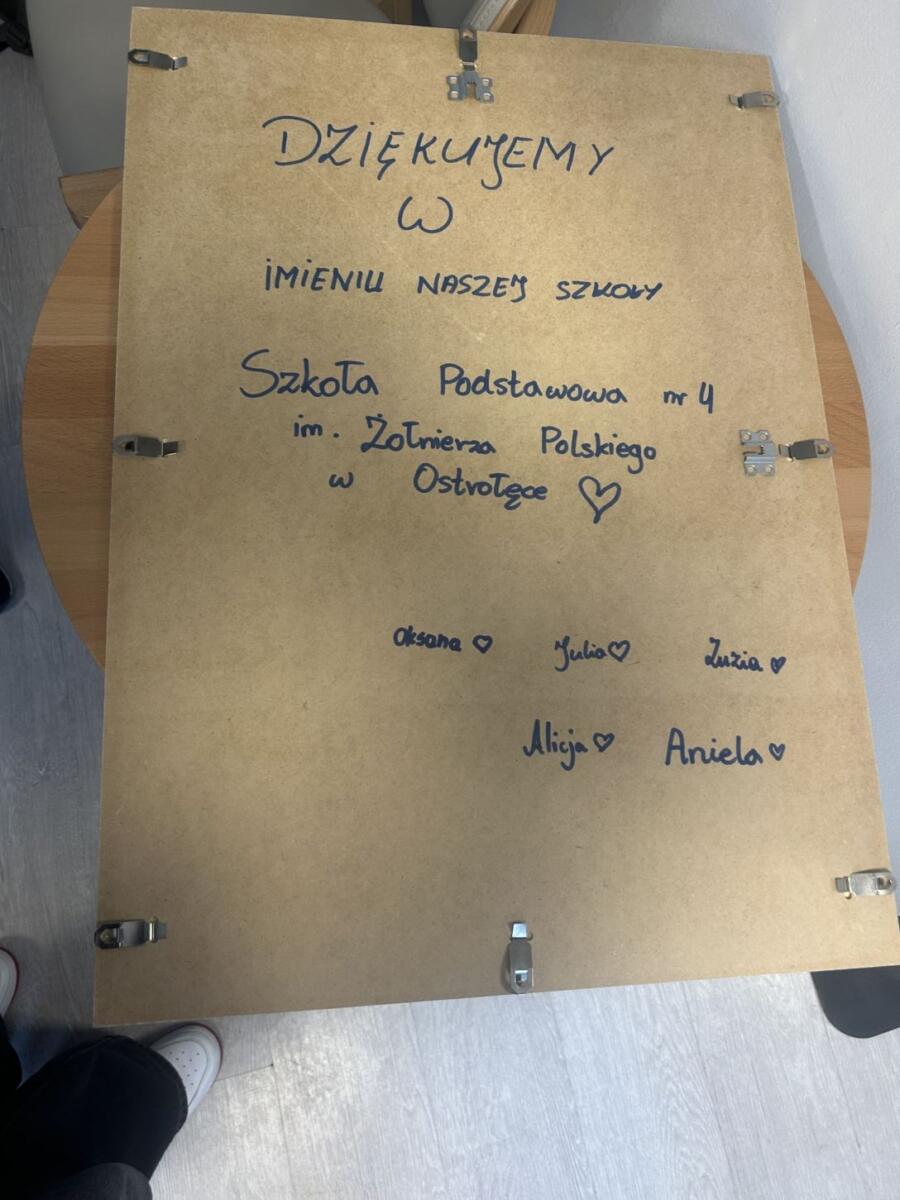 DZIĘKUJEMY
W
IMIENIU NASZEJ SZKOŁY
Szkoła Podstawowa nr 4
im. Żołnierza Polskiego
w Ostrołęce ♡
Oksana ♡ Julia ♡ Zuzia ♡
Alicja ♡ Aniela ♡